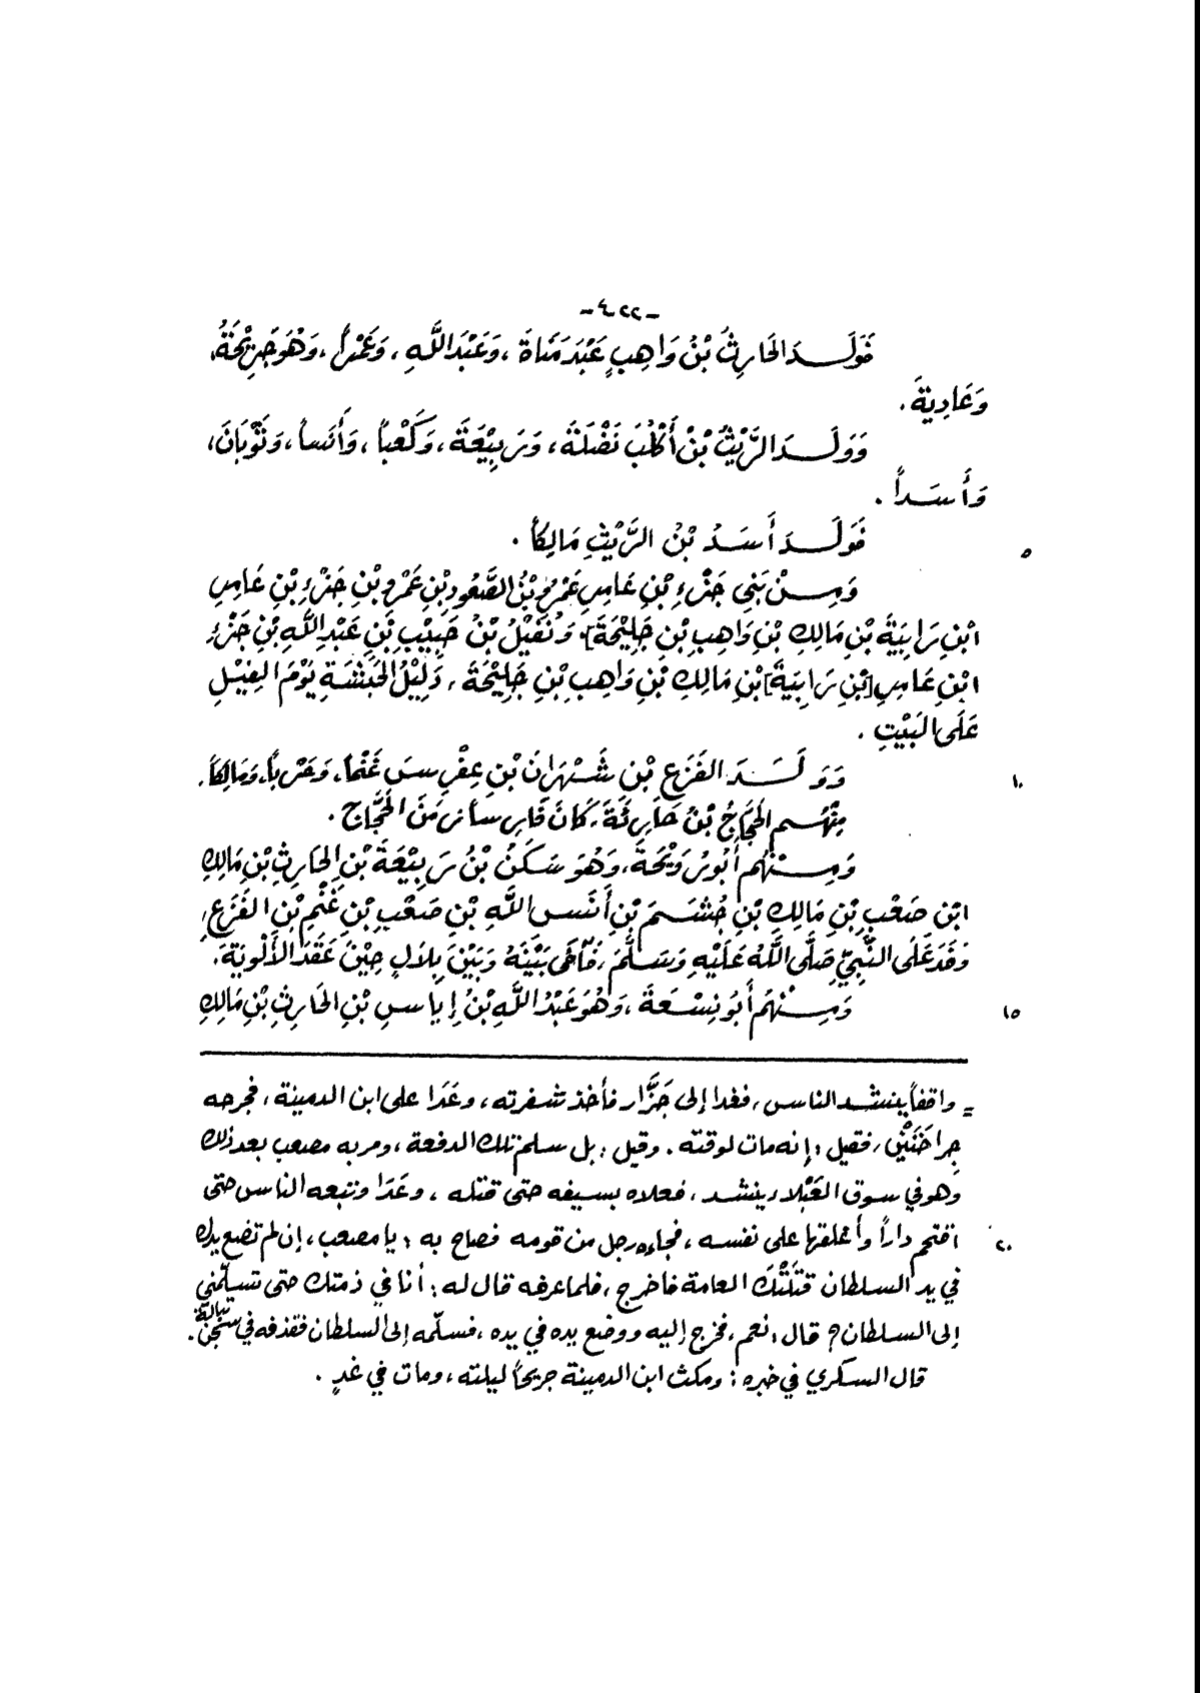 -٤٢٢-
فَوَلَدَ الحَارِثُ بْنُ وَاهِبٍ عَبْدَ مَنَاةَ، وَعَبْدَ اللَّهِ، وَعَمْرَاً، وَهُوَ جَزِيْحَةُ،
وَعَادِيةَ.
وَوَلَدَ الرَّيْثُ بْنُ أَكْلُبَ نَضْلَةَ، وَرَبِيْعَةَ، وَكَعْباً، وَأَنَساً، وَثَوْبَانَ،
وَأَسَداً.
فَوَلَدَ أَسَدُ بْنُ الرَّيْثِ مَالِكاً. ٥
وَمِنْ بَنِي جَزْءِ بْنِ عَامِرِ عَمْرُو بْنُ الصَّعُودِ بْنِ عَمْرِو بْنِ جَزْءِ بْنِ عَامِرِ
ابْنِ رَابِيَةَ بْنِ مَالِكِ بْنِ وَاهِبِ بْنِ جَلِيْحَةَ]، وَنُفَيْلُ بْنُ حَبِيْبِ بْنِ عَبْدِ اللَّهِ بْنِ جَزْءِ
ابْنِ عَامِرِ [بْنِ رَابِيَةَ] بْنِ مَالِكِ بْنِ وَاهِبِ بْنِ جَلِيْحَةَ، دَلِيْلُ الحَبَشَةِ يَوْمَ الفِيْلِ
عَلَى البَيْتِ.
وَوَلَدَ الفَزَعِ بْنِ شَهْرَانَ بْنِ عِفْرِسَ غَنْماً، وَحَرْباً، وَمَالِكاً. ١٠
مِنْهُم الحَجَّاجُ بْنُ حَارِثَةَ، كَانَ فَارِساً زَمَنَ الحَجَّاجِ.
وَمِنْهُم أَبُو رُوَيْحَةَ، وَهُوَ سَكَنُ بْنُ رَبِيْعَةَ بْنِ الحَارِثِ بْنِ مَالِكِ
ابْنِ صَعْبِ بْنِ مَالِكِ بْنِ جُشَمَ بْنِ أَنَسِ اللَّهِ بْنِ صَعْبِ بْنِ غَنْمِ بْنِ الفَزَعِ،
وَفَدَ عَلَى النَّبِيِّ صَلَّى اللَّهُ عَلَيْهِ وَسَلَّمَ، فَآخَى بَيْنَهُ وَبَيْنَ بِلَالٍ حِيْنَ عَقَدَ الأَلْوِيَةَ.
وَمِنْهُم أَبُو نِسْعَةَ، وَهُوَ عَبْدُ اللَّهِ بْنُ إِيَاسِ بْنِ الحَارِثِ بْنِ مَالِكِ ١٥
= واقفاً ينشد الناس، فغدا إلى جَزَّار فأخذ شفرته، وعَدَا على ابن الدمينة، فجرحه
جِراحَتَيْنِ، فقيل: إنه مات لوقته. وقيل: بل سلم تلك الدفعة، ومر به مصعب بعد ذلك
وهو في سوق العَبْلاء ينشد، فعلاه بسيفه حتى قتله، وعَدَا وتبعه الناس حتى
اقتحم داراً وأغلقها على نفسه، فجاءه رجل من قومه فصاح به: يا مصعب، إن لم تضع يدك ٢٠
في يد السلطان قتَلَتْكَ العامة فاخرج، فلما عرفه قال له: أنا في ذمتك حتى تسلّمني
إلى السلطان؟ قال: نعم، فخرج إليه ووضع يده في يده، فسلّمه إلى السلطان فقذفه في سجن تبالة.
قال السكري في خبره: ومكث ابن الدمينة جريحاً ليلته، ومات في غدٍ.